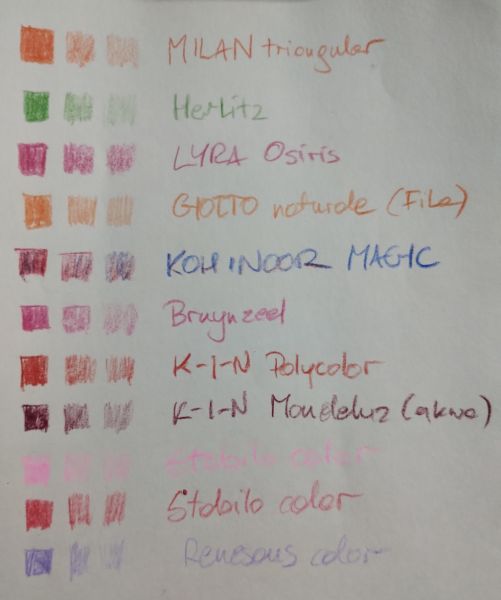 MILAN triangular
Herlitz
LYRA Osiris
GIOTTO naturale (Fila)
KOH INOOR MAGIC
Bruynzeel
K-I-N Polycolor
K-I-N Mondeluz (akwa)
Stabilo color
Stabilo color
Renesans color